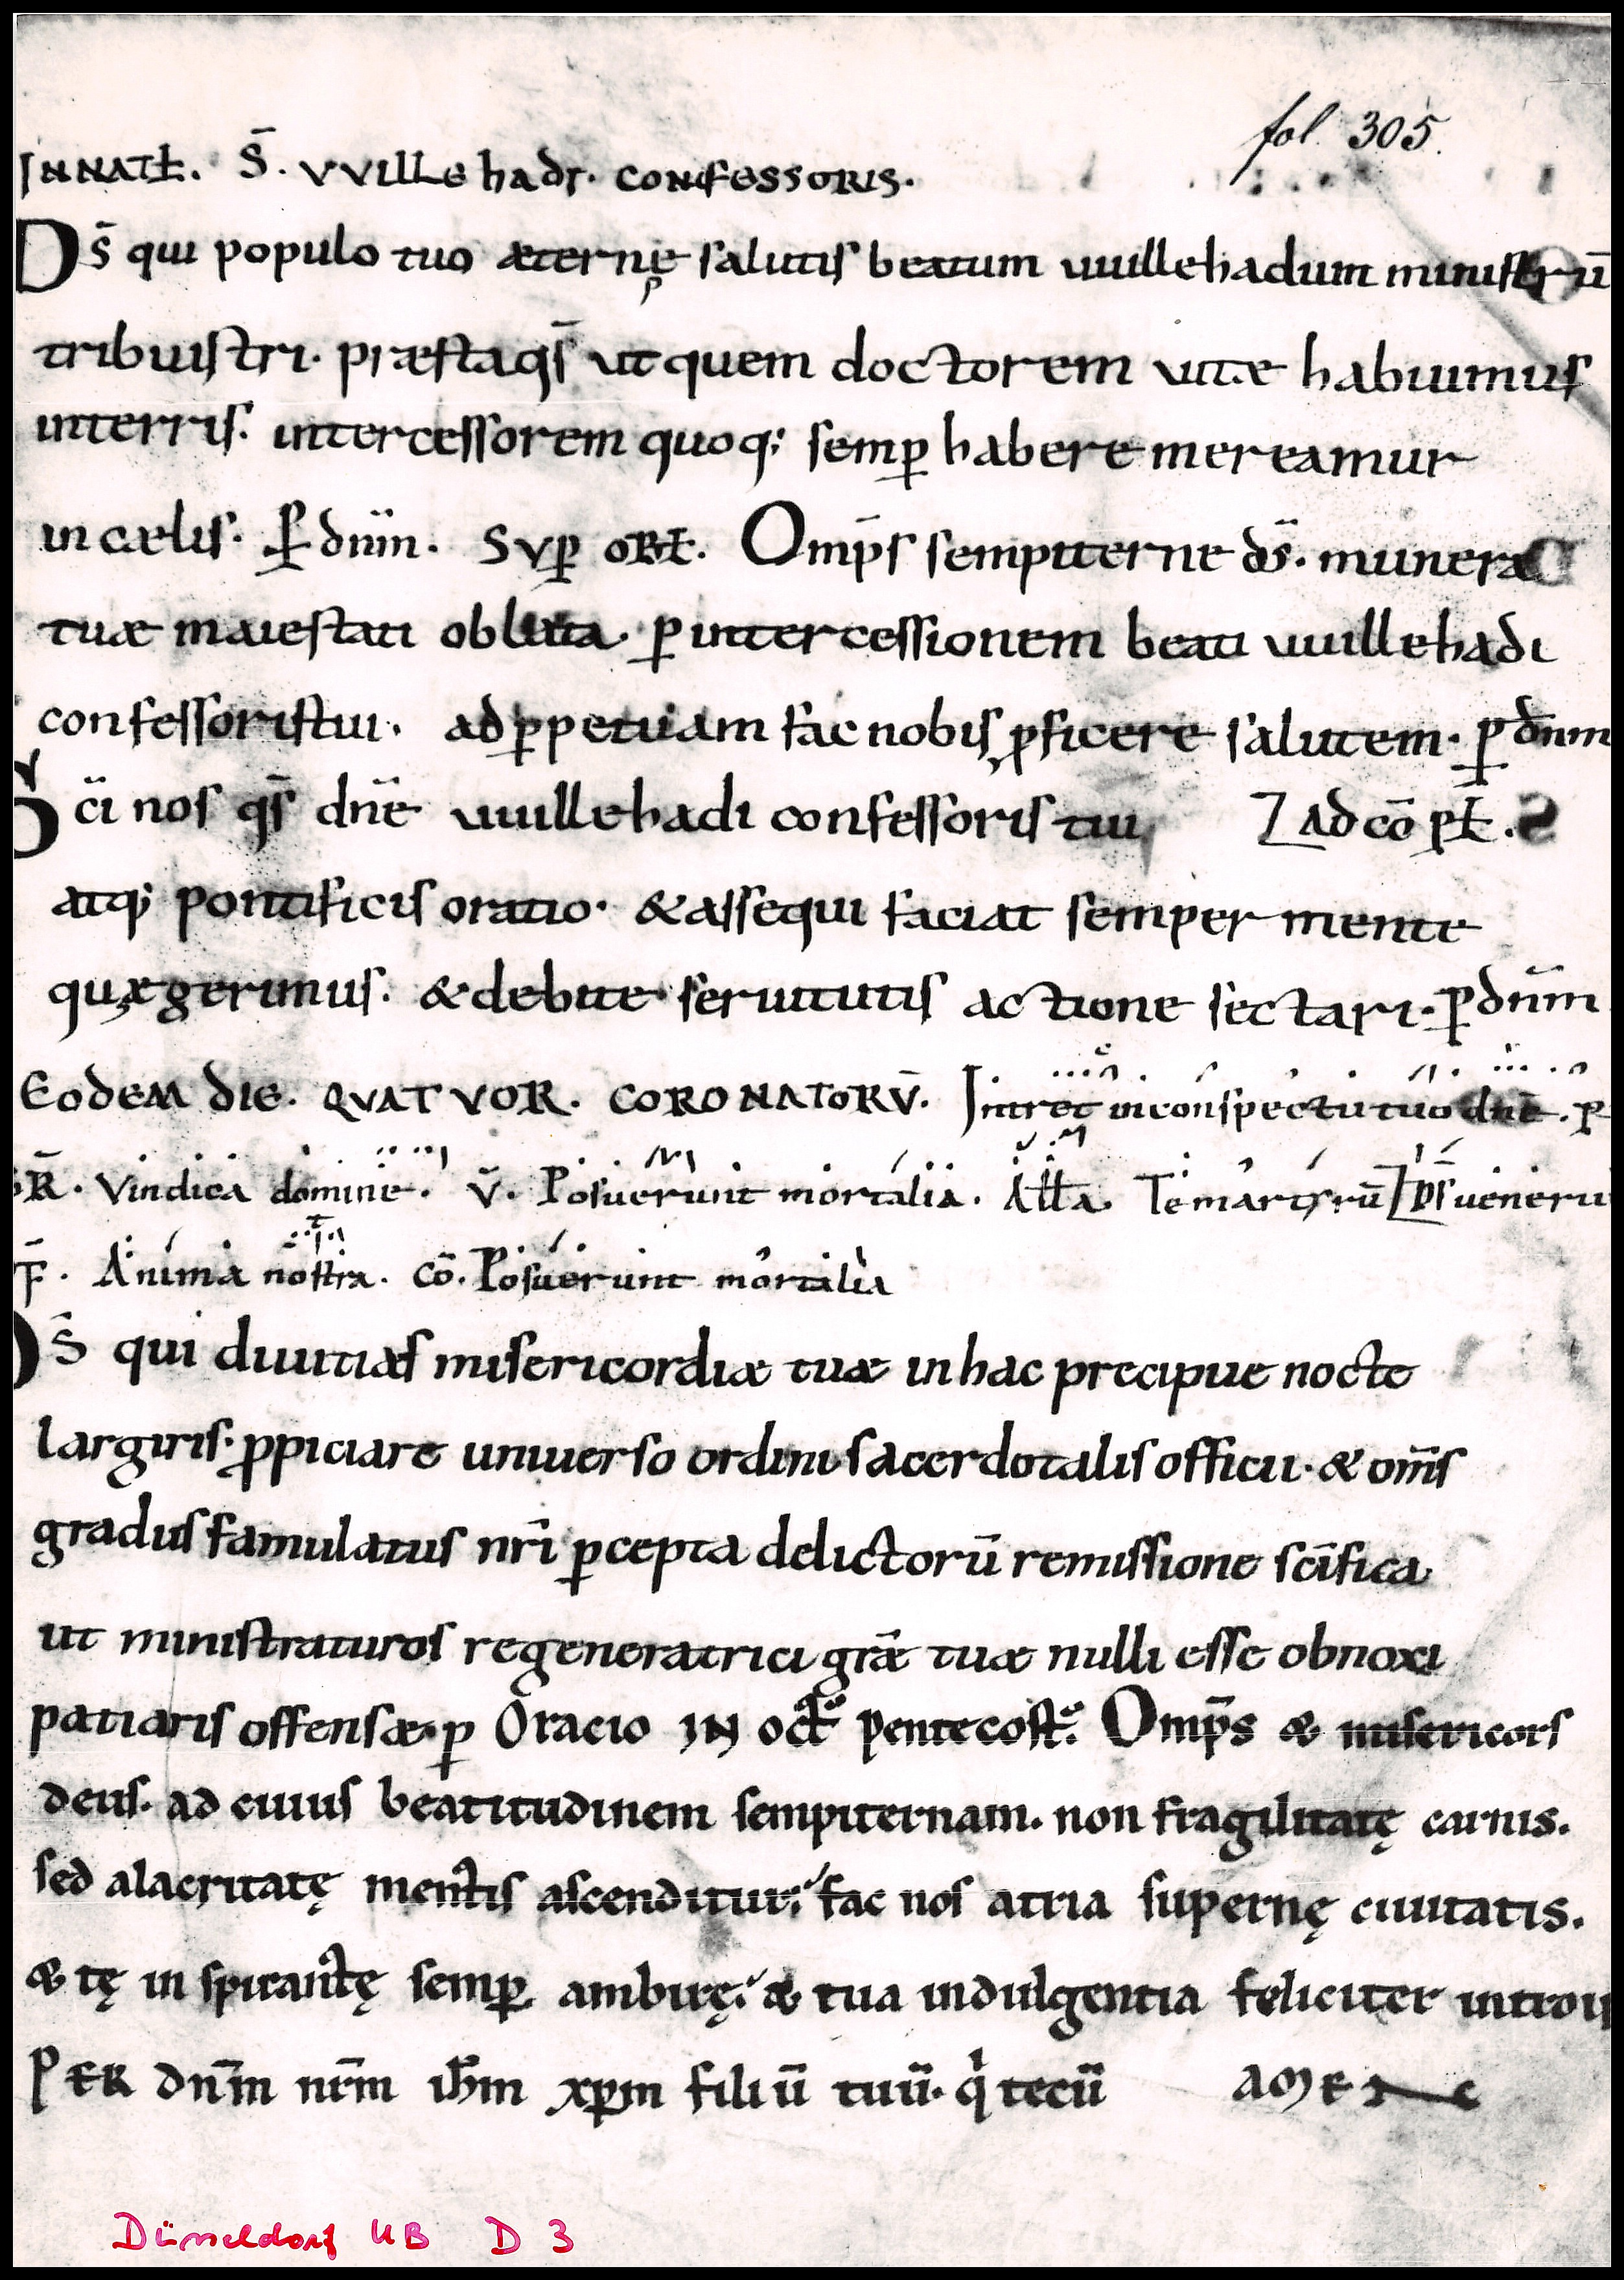 fol. 305.
INNATƚ. S̄. VVILLEhadI. CONFESSORIS.
Ds̄ qui populo tuo æternę salutis beatum uuillehadum ministrū
tribuisti. præsta qs̄ ut quem doctorem uitæ habuimus
interris. intercessorem quoq; semꝑ habere mereamur
in cælis. ꝑ dnm̄. SVꝑ OBƚ. Omp̄s sempiterne ds̄. munera
tuæ maiestati oblata. ꝑ intercessionem beati uuillehadi
confessoris tui. ad ꝑpetuam fac nobis ꝓficere salutem. ꝑ dnm̄
Sc̄i nos qs̄ dn̄e uuillehadi confessoris tui Ad cō pƚ.
atq; pontificis oratio. & assequi faciat semper mente
quæ gerimus. & debite seruitutis actione sectari. ꝑ dnm̄
EODEM DIE. QVATVOR. CORONATORV̄. Intret inconspectu tuo dnē. p
R̄. Vindica domine. V̄. Posuerunt mortalia. All̄a. Te martyrū ps̄ ueneru
F̄. Anima nostra. Cō. Posuerunt mortalia
Ds̄ qui diuitias misericordiæ tuæ in hac precipue nocte
largiris. ꝓpiciare uniuerso ordini sacerdotalis officii. & om̄s
gradus famulatus nr̄i ꝑcepta delictorū remissione sc̄ifica
ut ministraturos regeneratrici gr̄æ tuæ nulli esse obnoxi
patiaris offensæ. ꝑ Oracio IN oct̄ pentecost̄. Omp̄s & misericors
deus. ad cuius beatitudinem sempiternam. non fragilitatę carnis.
sed alacritatę mentis ascenditur; fac nos atria supernę ciuitatis.
& tę in spirantę semꝑ ambirę. & tua indulgentia feliciter introi
PER dn̄m nr̄m ih̄m xp̄m filiū tuū. q̇ tecū AMEN
Düsseldorf UB D 3